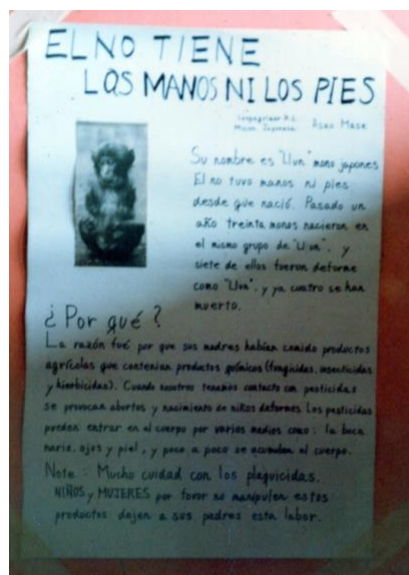 EL NO TIENE
LAS MANOS NI LOS PIES
Asao Mase
Su nombre es "Uun" mono japones
El no tuvo manos ni pies
desde que nació. Pasado un
año treinta monos nacieron en
el mismo grupo de "Uun", y
siete de ellos fueron deforme
como "Uun", y ya cuatro se han
muerto.
¿Por qué?
La razón fué por que sus madres habían comido productos
agrícolas que contenían productos químicos (fungicidas, insecticidas
y hierbicidas). Cuando nosotros tenemos contacto con pesticidas
se provocan abortos y nacimiento de niños deformes. Los pesticidas
pueden entrar en el cuerpo por varios medios como: la boca
nariz, ojos y piel, y poco a poco se acumulan al cuerpo.
Note: Mucho cuidad con los plaguicidas.
NIÑOS y MUJERES por favor no manipulen estos
productos dejen a sus padres esta labor.